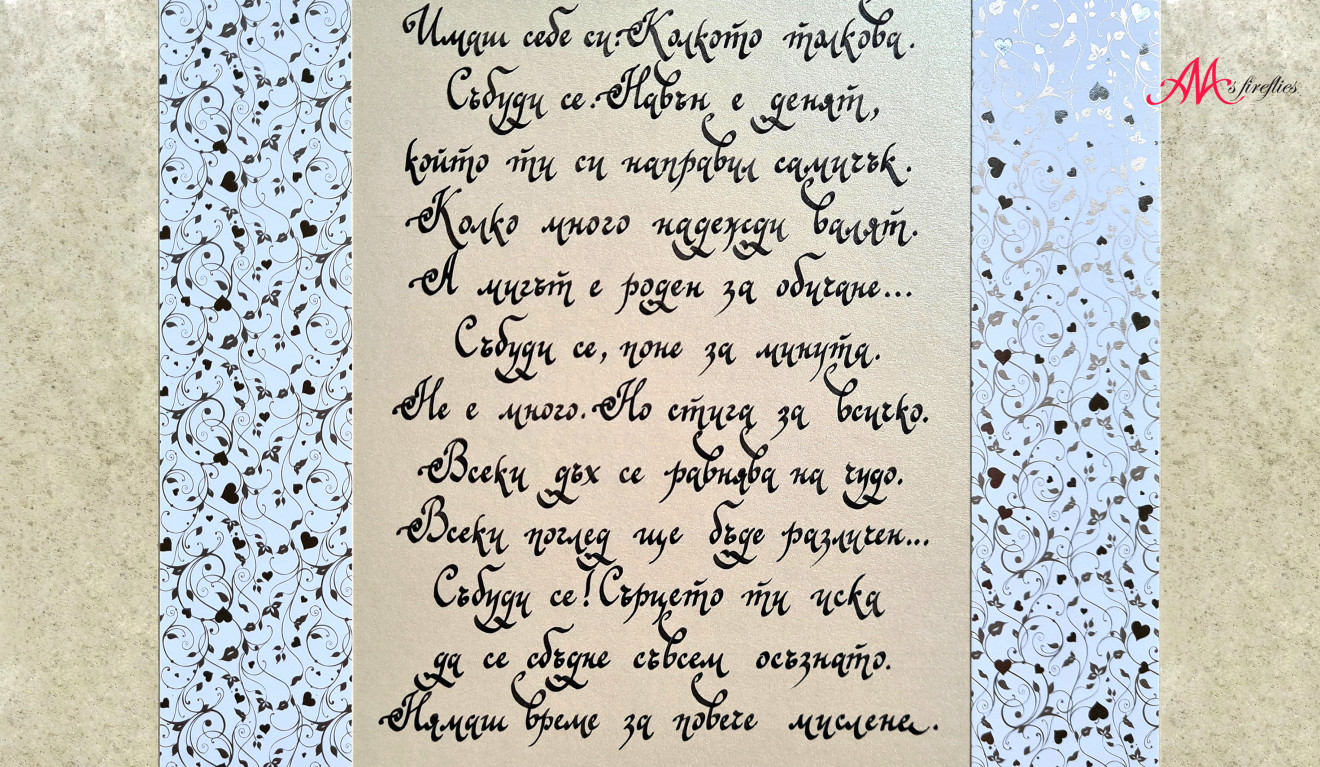 Имаш себе си. Колкото толкова.
Събуди се. Навън е денят,
който ти си направил самичък.
Колко много надежди валят.
А мигът е роден за обичане...
Събуди се, поне за минута.
Не е много. Но стига за всичко.
Всеки дъх се равнява на чудо.
Всеки поглед ще бъде различен...
Събуди се! Сърцето ти иска
да се сбъдне съвсем осъзнато.
Нямаш време за повече мислене.
AM's fireflies